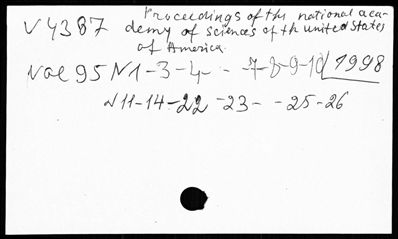 V4387 Proceedings of the national aca-
demy of sciences of the united states
of America.
Vol 95 N1-3-4- - 7-8-9-10/1998
N11-14-22-23- -25-26